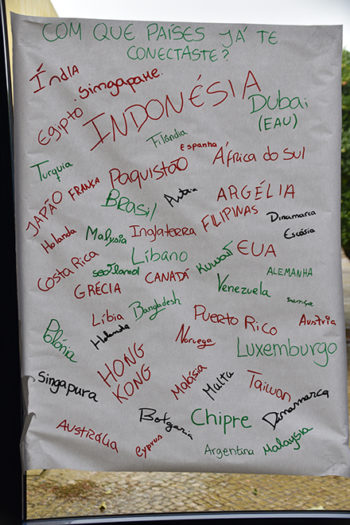 COM QUE PAÍSES JÁ TE
CONECTASTE?
Índia
Singapure
INDONÉSIA
Dubai
(EAU)
Egipto
Filândia
Espanha
África do Sul
Turquia
Paquistão
FRANÇA
JAPÃO
Brasil
ARGÉLIA
FILIPINAS
Dinamarca
Escócia
Holanda
Malásia
Inglaterra
Líbano
Kuwait
EUA
Costa Rica
CANADÁ
ALEMANHA
GRÉCIA
Venezuela
Líbia
Bangladesh
Puerto Rico
Austria
Polónia
Holanda
Noruega
Luxemburgo
HONG
KONG
Singapura
Malta
Taiwan
Dinamarca
Chipre
Austrália
Cyprus
Argentina
Malaysia